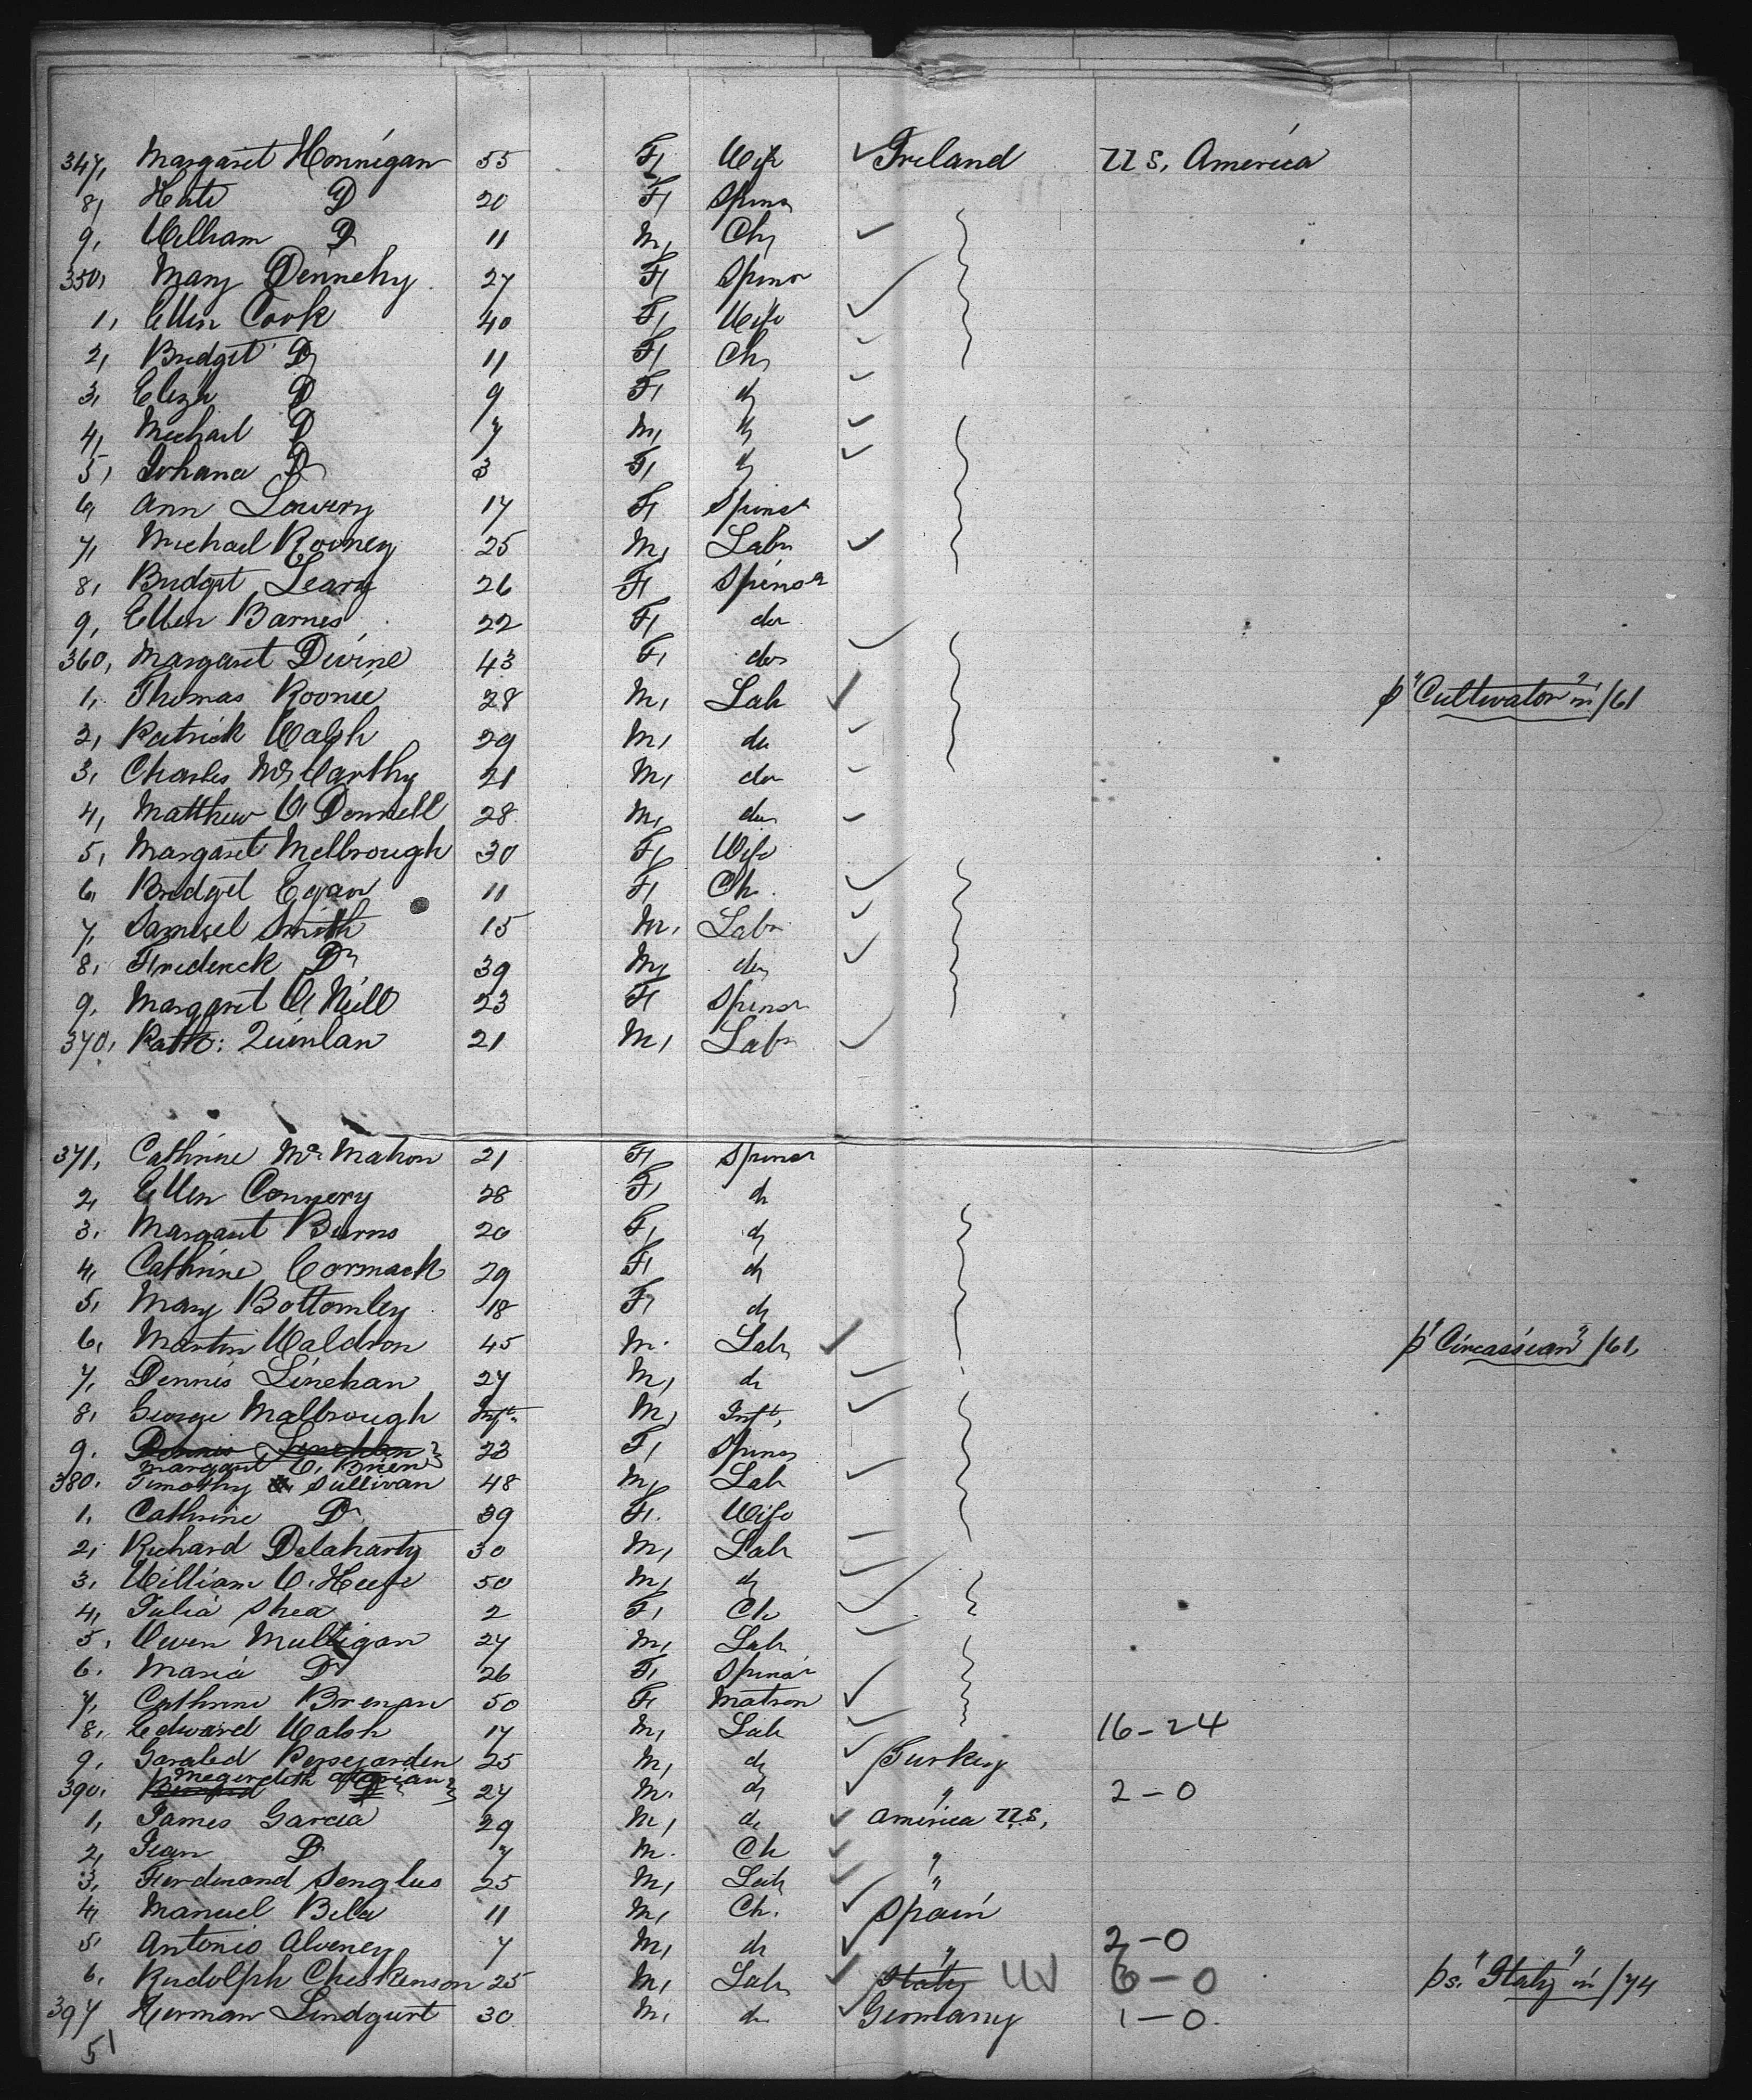 347, Margaret Honnigan 55 F, Wife Ireland U S, America
8, Kate D 20 F, Spinsr
9, William D 11 M, Ch,
350, Mary Dennehy 27 F, Spinsr
1, Ellen Cook 40 F, Wife
2, Bridget D 11 F, Ch,
3, Eliza D 9 F, d
4, Michael D 7 M, d
5, Johana D 3 F, d
6, Ann Lowery 17 F, Spinsr
7, Michael Rooney 25 M, Labr
8, Bridget Leary 26 F, Spinsr
9, Ellen Barnes 22 F, do
360, Margaret Divine 43 F, do
1, Thomas Roonie 28 M, Lab p "Cultivator" in /61
2, Patrick Walsh 29 M, do
3, Charles McCarthy 21 M, do
4, Matthew O'Donnell 28 M, do
5, Margaret Melbrough 30 F, Wife
6, Bridget Egan 11 F, Ch.
7, Samuel Smith 15 M, Labr
8, Frederick Do 39 M, do
9, Margaret O'Neill 23 F, Spinsr
370, Patk: Quinlan 21 M, Labr
371, Cathrine McMahon 21 F, Spinsr
2, Ellen Connery 28 F, do
3, Margaret Burns 20 F, d
4, Cathrine Cormack 29 F, do
5, Mary Bottomley 18 F, do
6, Martin Waldron 45 M. Lab, p "Circassian" /61,
7, Dennis Linehan 27 M, do
8, George Malbrough Inft. M, Inft,
9. Dennis Linehan 23 F, Spinsr
Margaret O'Brien
380. Timothy Sullivan 48 M, Lab
1. Cathrine Do 39 F. Wife
2, Richard Delaharty 30 M, Lab
3, William O'Keefe 50 M, d
4, Julia Shea 2 F, Ch
5, Owen Mulligan 27 M, Lab
6. Maria Do 26 F, Spinsr
7, Cathrine Brenan 50 F, Matron
8, Edward Walsh 17 M, Lab 16-24
9. Garabed 25 M, d Turkey
Megerditch
390. 24 M. d " 2-0
1, James Garcia 29 M, d America U.S,
2, Jean D 7 M. Ch "
3, Ferdinand Senglus 25 M, Lab "
4, Manuel Bela 11 M, Ch. Spain
5, Antonio Alveney 7 M, do " 2-0
6, Rudolph Cheskenson 25 M, Lab Italy US 6-0 p s. "Italy" in /74
397 Herman Lindgurt 30 M, do Germany 1-0.
51